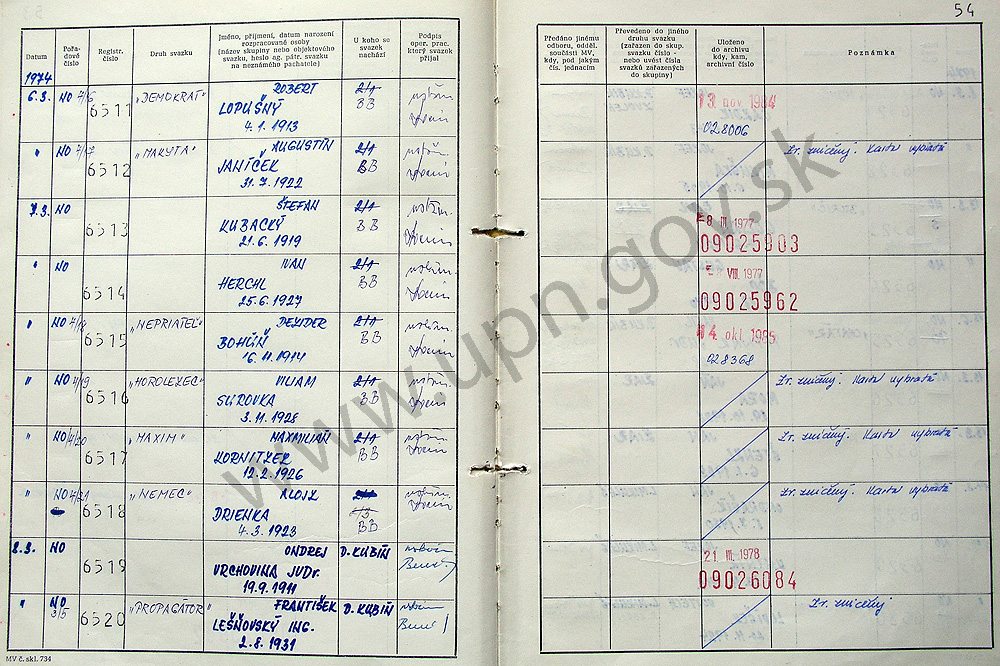 54
Datum
Pořa-
dové
číslo
Registr.
číslo
Druh svazku
Jméno, příjmení, datum narození
rozpracované osoby
(název skupiny nebo objektového
svazku, heslo ag. pátr. svazku
na neznámého pachatele)
U koho se
svazek
nachází
Podpis
oper. prac.
který svazek
přijal
Předáno jinému
odboru, odděl.
součásti MV,
kdy, pod jakým
čís. jednacím
Převedeno do jiného
druhu svazku
(zařazen do skup.
svazku číslo -
nebo uvést čísla
svazků zařazených
do skupiny)
Uloženo
do archivu
kdy, kam,
archivní číslo
Poznámka
1974
6.3. NO 7/6 6511 "DEMOKRAT" ROBERT 2/1
LOPUŠNÝ BB
4.1. 1913
13 nov. 1984
028006
" NO 7/17 6512 "MAKYTA" AUGUSTÍN 2/1
JANÍČEK BB
31.7. 1922
Zv. zničený. Karta vybratá
7.3. NO 6513 ŠTEFAN 2/1
KUBACKÝ BB
21.6. 1919
8 III 1977
09025903
" NO 6514 IVAN 2/1
HERCHL BB
25.6. 1927
VIII. 1977
09025962
" NO 7/18 6515 "NEPRIATEĽ" DEZIDER 2/1
BOHÚŇ BB
16.11. 1914
14 okt. 1985
028368
" NO 7/19 6516 "HOROLEZEC" VILIAM 2/1
SUROVKA BB
3.11. 1928
Zv. zničený. Karta vybratá
" NO 7/20 6517 "MAXIM" MAXMILIÁN 2/1
KORNITZER BB
12.2. 1926
Zv. zničený. Karta vybratá
" NO 7/21 6518 "NEMEC" ALOJZ
DRIENKA BB
4.3. 1923
Zv. zničený. Karta vybratá
2.3. NO 6519 ONDREJ D. KUBÍN
VRCHOVINA JUDr.
19.9. 1911
21 III. 1978
09026084
" NO 3/5 6520 "PROPAGÁTOR" FRANTIŠEK D. KUBÍN
LEŠŇOVSKÝ ING.
2.8. 1931
Zv. zničený
MV č. skl. 734
www.upn.gov.sk